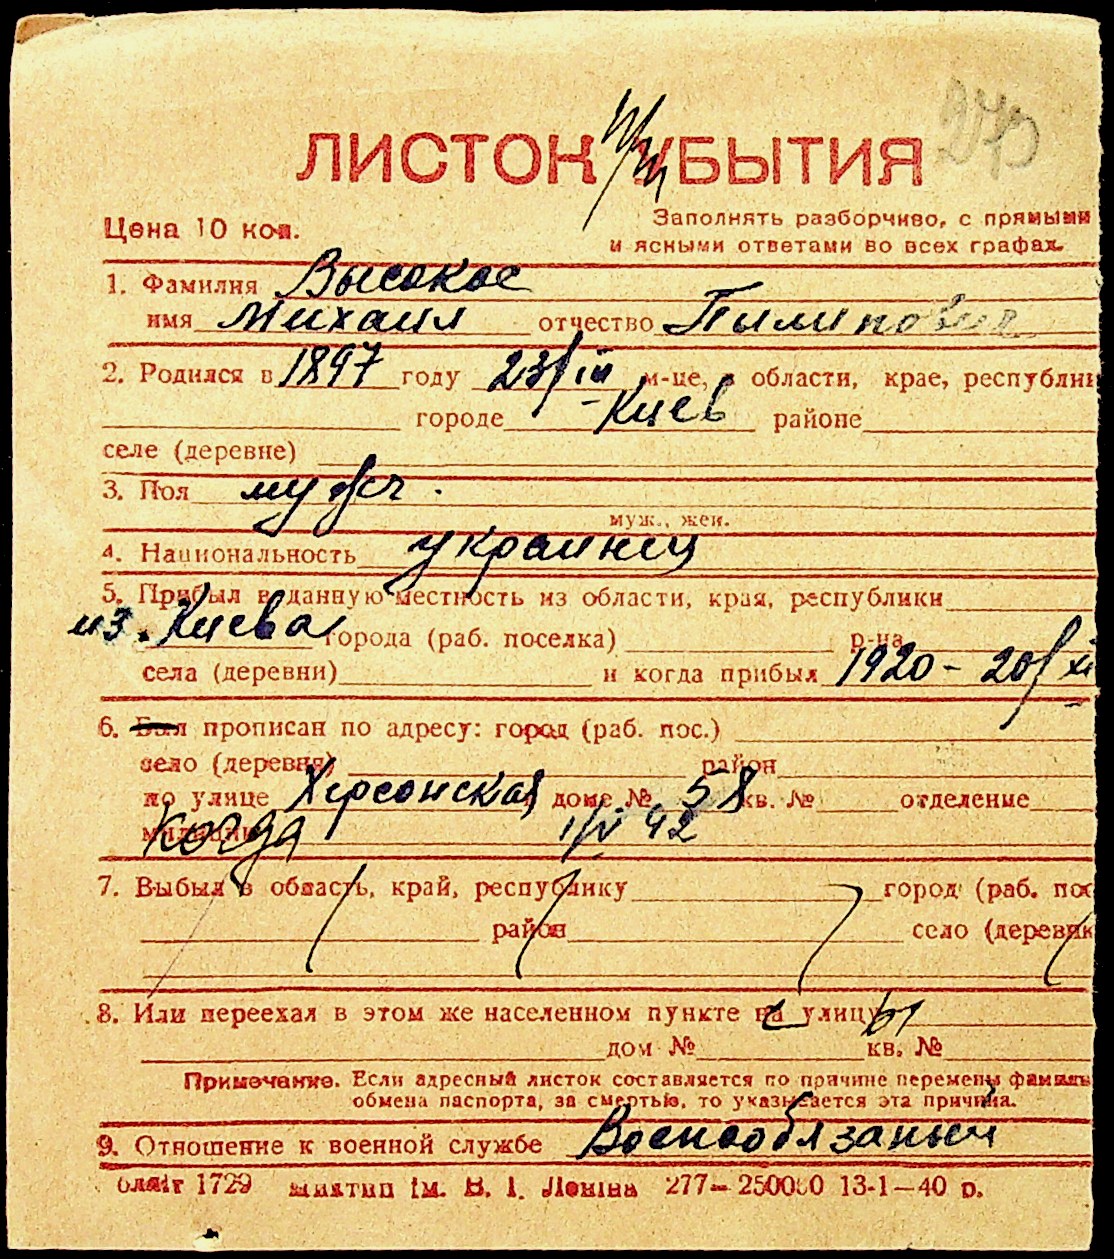 270
ЛИСТОК УБЫТИЯ
Цена 10 коп.
Заполнять разборчиво, с прямыми
и ясными ответами во всех графах.
1. Фамилия Высокос
имя Михаил отчество Пилипович
2. Родился в 1897 году 23/III м-це, в области, крае, республик
городе Киев районе
селе (деревне)
3. Пол мужч.
муж., жен.
4. Национальность украинец
5. Прибыл в данную местность из области, края, республики
из Киева города (раб. поселка) р-на
села (деревни) и когда прибыл 1920 - 20/XI
6. Был прописан по адресу: город (раб. пос.)
село (деревня) район
по улице Херсонская доме № 58 кв. № отделение
милиции когда 1/V 42
7. Выбыл в область, край, республику город (раб. пос
район село (деревн
8. Или переехал в этом же населенном пункте на улицу
дом № кв. №
Примечание. Если адресный листок составляется по причине перемены фамили
обмена паспорта, за смертью, то указывается эта причина.
9. Отношение к военной службе Военнообязанный
облліт 1729 міктип ім. В. І. Леніна 277—250000 13-1—40 р.